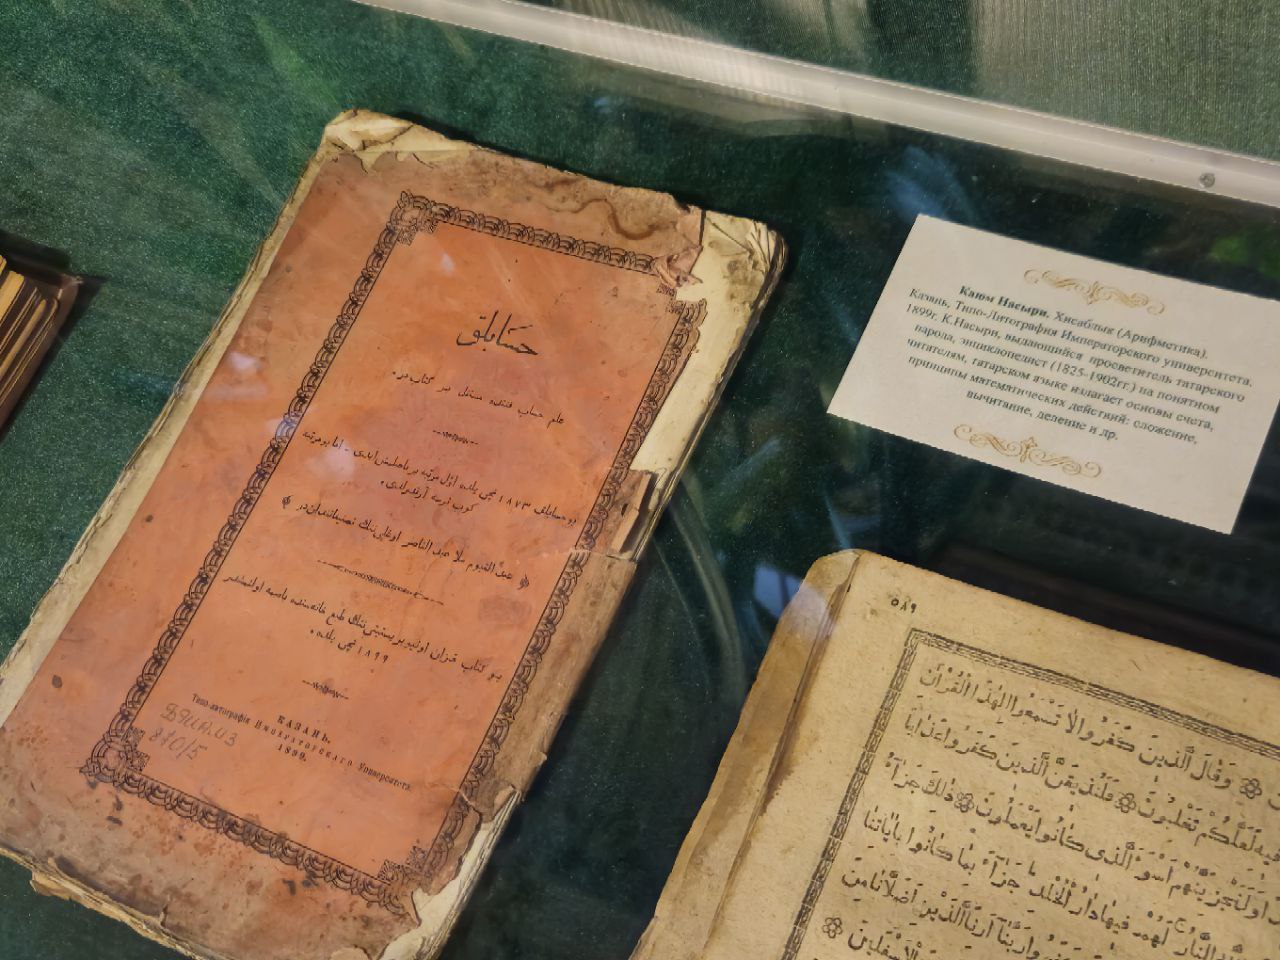 حسابلق
علم حساب فننده مستقل بر كتاب در.
بو حسابلق ١٨٧٣ نچی یلده اوّل مرتبه بر باصلمش ایدی ـ اما بو مرتبه
كوب نرسه آرتدرلدی.
﴿ عبد القیوم ملا عبد الناصر اوغلی ننك تصنیفاتندان در ﴾
بو كتاب قزان اونیویرسیتیتی ننك طبع خانه سنده باصمه اولنمشدر
١٨٩٩ نچی یلده.
КАЗАНЬ.
Типо-литографія Императорскаго Университета.
1899.
870/5
Каюм Насыри. Хисаблык (Арифметика).
Казань, Типо-Литография Императорского университета,
1899г. К.Насыри, выдающийся просветитель татарского
народа, энциклопедист (1825-1902гг.) на понятном
читателям, татарском языке излагает основы счета,
принципы математических действий: сложение,
вычитание, деление и др.
٥٨٩
وَقَالَ الَّذِينَ كَفَرُوا لَا تَسْمَعُوا لِهٰذَا الْقُرْآنِ
لَعَلَّكُمْ تَغْلِبُونَ فَلَنُذِيقَنَّ الَّذِينَ كَفَرُوا عَذَابًا
وَلَنَجْزِيَنَّهُمْ أَسْوَأَ الَّذِي كَانُوا يَعْمَلُونَ ذٰلِكَ جَزَاءُ
النَّارُ لَهُمْ فِيهَا دَارُ الْخُلْدِ جَزَاءً بِمَا كَانُوا بِآيَاتِنَا
رَبَّنَا أَرِنَا الَّذَيْنِ أَضَلَّانَا مِنَ
الْأَسْفَلِينَ